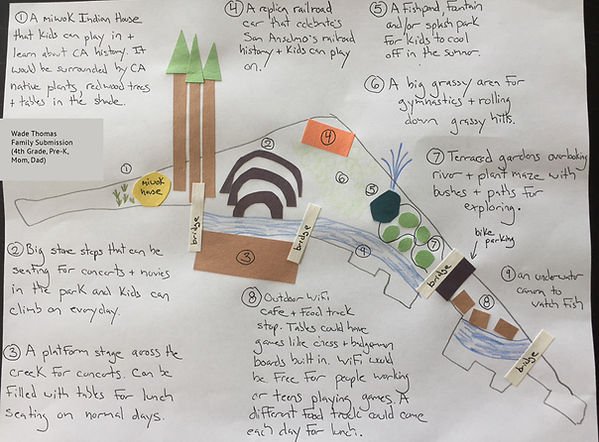 ① A miwok Indian House
that kids can play in +
learn about CA history. It
would be surrounded by CA
native plants, redwood trees
+ tables in the shade.
④ A replica railroad
car that celebrates
San Anselmo's railroad
history + kids can play
on.
⑤ A Fishpond, fountain
and/or splash park
for kids to cool
off in the summer.
⑥ A big grassy area for
gymnastics + rolling
down grassy hills.
Wade Thomas
Family Submission
(4th Grade, Pre-K,
Mom, Dad)
⑦ Terraced gardens overlooking
river + plant maze with
bushes + paths for
exploring.
bike
parking
①
miwok
house
②
④
⑥
⑤
⑦
bridge
bridge
③
⑨
bridge
⑧
bridge
② Big stone steps that can be
seating for concerts + movies
in the park and kids can
climb on everyday.
③ A platform stage across the
creek for concerts. Can be
filled with tables for lunch
seating on normal days.
⑧ Outdoor Wifi
cafe + food truck
stop. Tables could have
games like chess + backgammon
boards built in. Wifi would
be free for people working
or teens playing games. A
different food truck could come
each day for lunch.
⑨ an underwater
camera to
watch fish